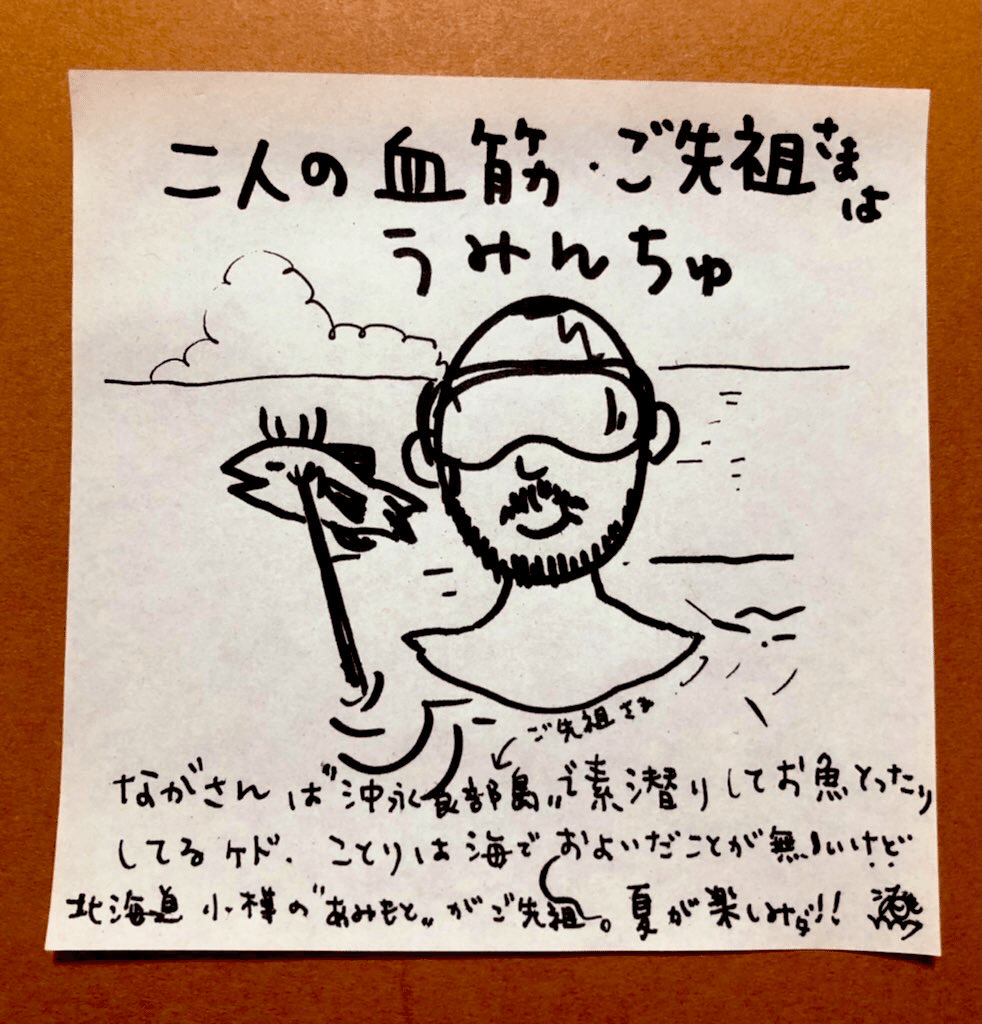 二人の血筋・ご先祖さまは
うみんちゅ
ご先祖さま
ながさんは"沖永良部島"で素潜りしてお魚とったり
してるケド、ことりは海でおよいだことが無いけど
北海道小樽の"あみもと"がご先祖。夏が楽しみダ!!